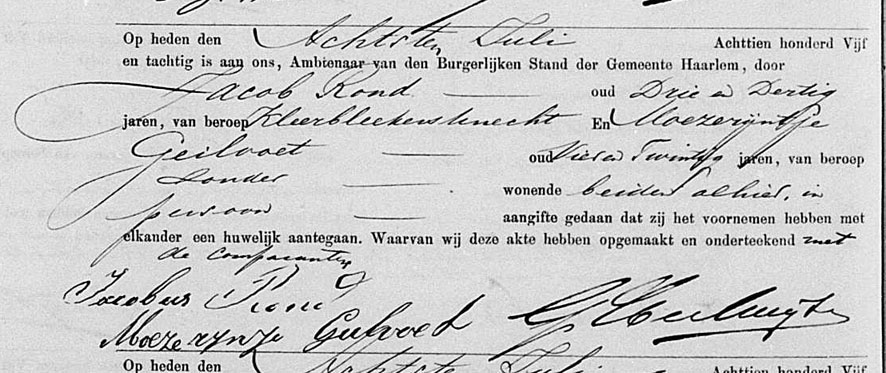 Op heden den Achtsten Juli Achttien honderd Vijf
en tachtig is aan ons, Ambtenaar van den Burgerlijken Stand der Gemeente Haarlem, door
Jacob Rond oud Drie en Dertig
jaren, van beroep Kleerbleekersknecht En Moezerijntje
Geilvoet oud Vier en Twintig jaren, van beroep
zonder wonende beiden alhier, in
persoon aangifte gedaan dat zij het voornemen hebben met
elkander een huwelijk aantegaan. Waarvan wij deze akte hebben opgemaakt en onderteekend met
de comparanten
Jacobus Rond
Moezerynje Geilvoet
Op heden den Achtste Juli Achttien honderd Vijf